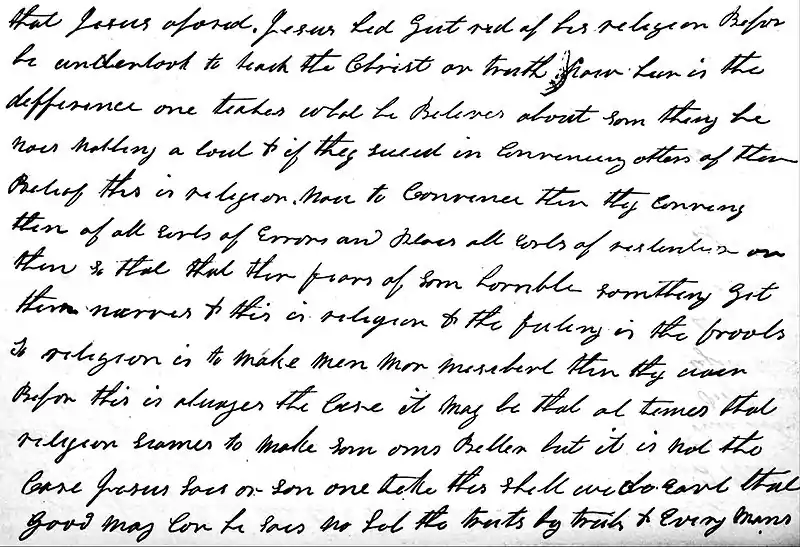 that Jesus oposed. Jesus had got rid of his religion Befor
he undertook to teach the Christ or truth now hear is the
defference one teaches what he Beleves about som thing he
noes nothing a bout & if they suceed in Convencing others of their
Beleif this is religion. Now to Convence then they Conveng
then of all sorts of Errors and places all sorts of on
then so that that ther fears of som horrible something get
them narves & this is religion & the feeling is the froots
So religion is to make men mor meseberl then they ever
Befor this is alwages the Case it may be that at times that
religion seames to make som ons Better but it is not the
Case Jesus saes or son one like this shall we do eavel that
good may Con he saes no let the truts by truth & Every mans